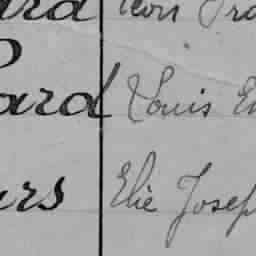 ard Léon Fra
ard Louis E
urs Elie Josep